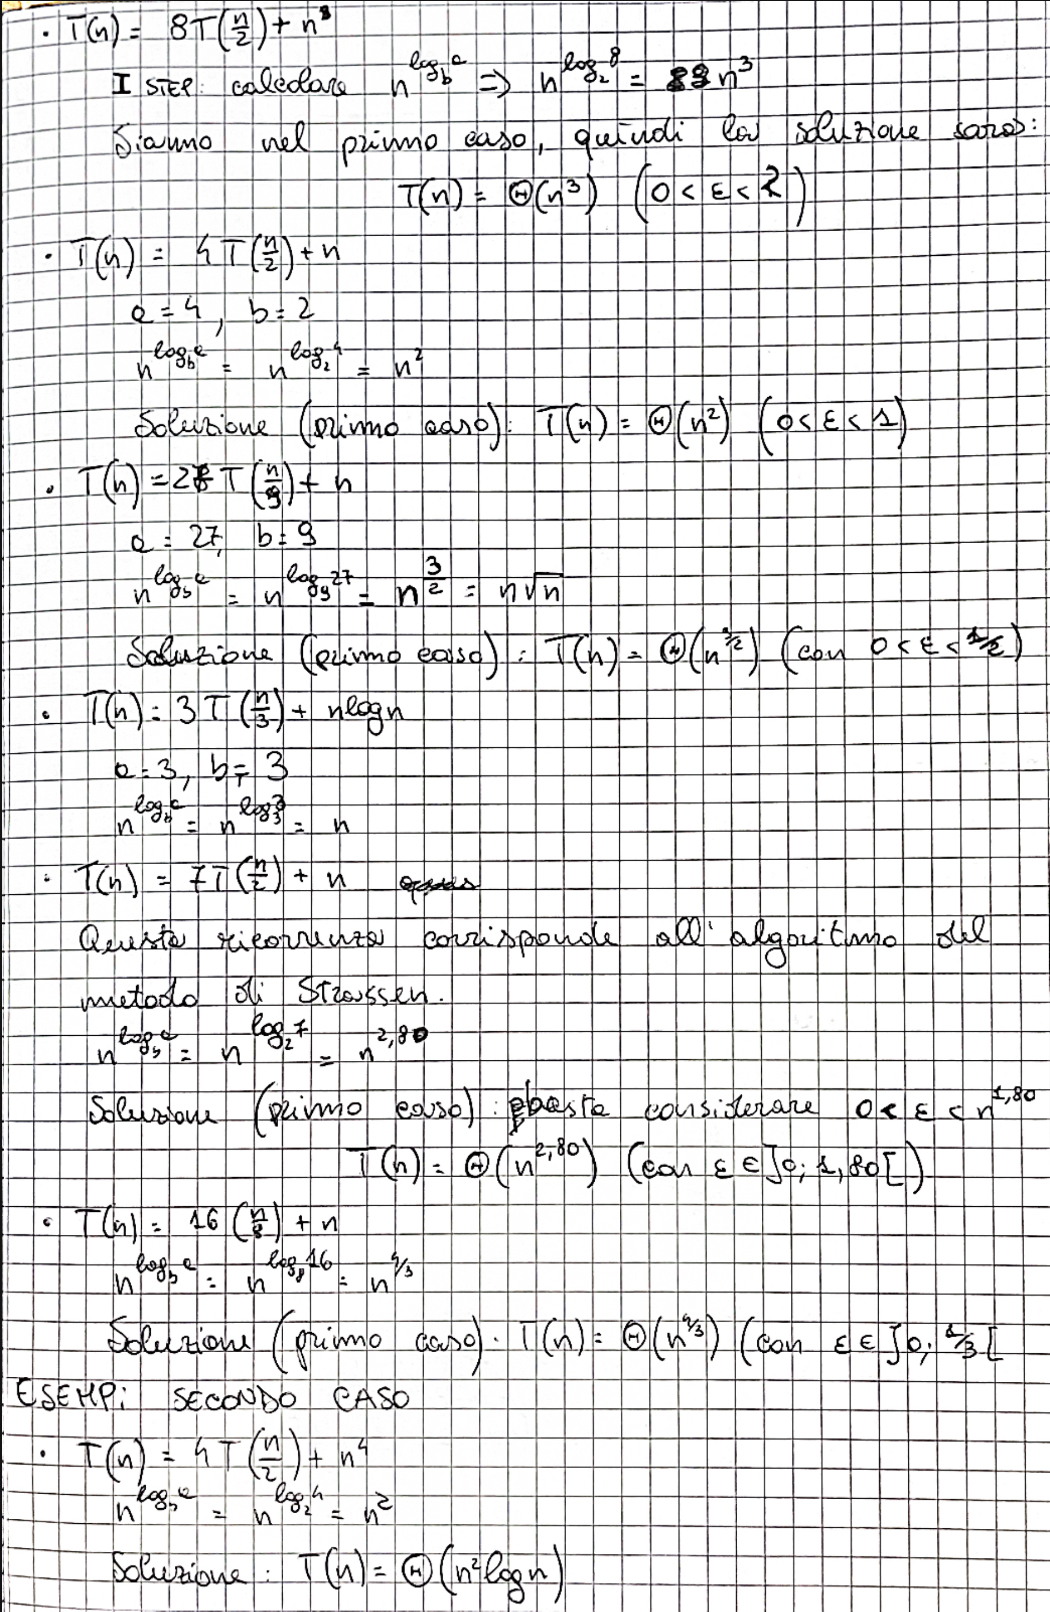 · T(n) = 8T(n/2) + n⁸
I STEP: calcolare n^(log_b a) => n^(log_2 8) = n³
Siamo nel primo caso, quindi la soluzione sarà:
T(n) = Θ(n³) (0 < ε < 2)
· T(n) = 4T(n/2) + n
a = 4, b = 2
n^(log_b a) = n^(log_2 4) = n²
Soluzione (primo caso): T(n) = Θ(n²) (0 < ε < 1)
· T(n) = 27T(n/9) + n
a = 27, b = 9
n^(log_b a) = n^(log_9 27) = n^(3/2) = n√n
Soluzione (primo caso): T(n) = Θ(n^(3/2)) (con 0 < ε < 1/2)
· T(n) = 3T(n/3) + nlogn
a = 3, b = 3
n^(log_b a) = n^(log_3 3) = n
· T(n) = 7T(n/2) + n
Questa ricorrenza corrisponde all'algoritmo del
metodo di Strassen.
n^(log_b a) = n^(log_2 7) = n^(2,80)
Soluzione (primo caso): basta considerare 0 < ε < n^(1,80)
T(n) = Θ(n^(2,80)) (con ε ∈ ]0; 1,80[)
· T(n) = 16(n/8) + n
n^(log_b a) = n^(log_8 16) = n^(4/3)
Soluzione (primo caso): T(n) = Θ(n^(4/3)) (con ε ∈ ]0; 1/3[
ESEMPi SECONDO CASO
· T(n) = 4T(n/2) + n⁴
n^(log_b a) = n^(log_2 4) = n²
Soluzione: T(n) = Θ(n²logn)